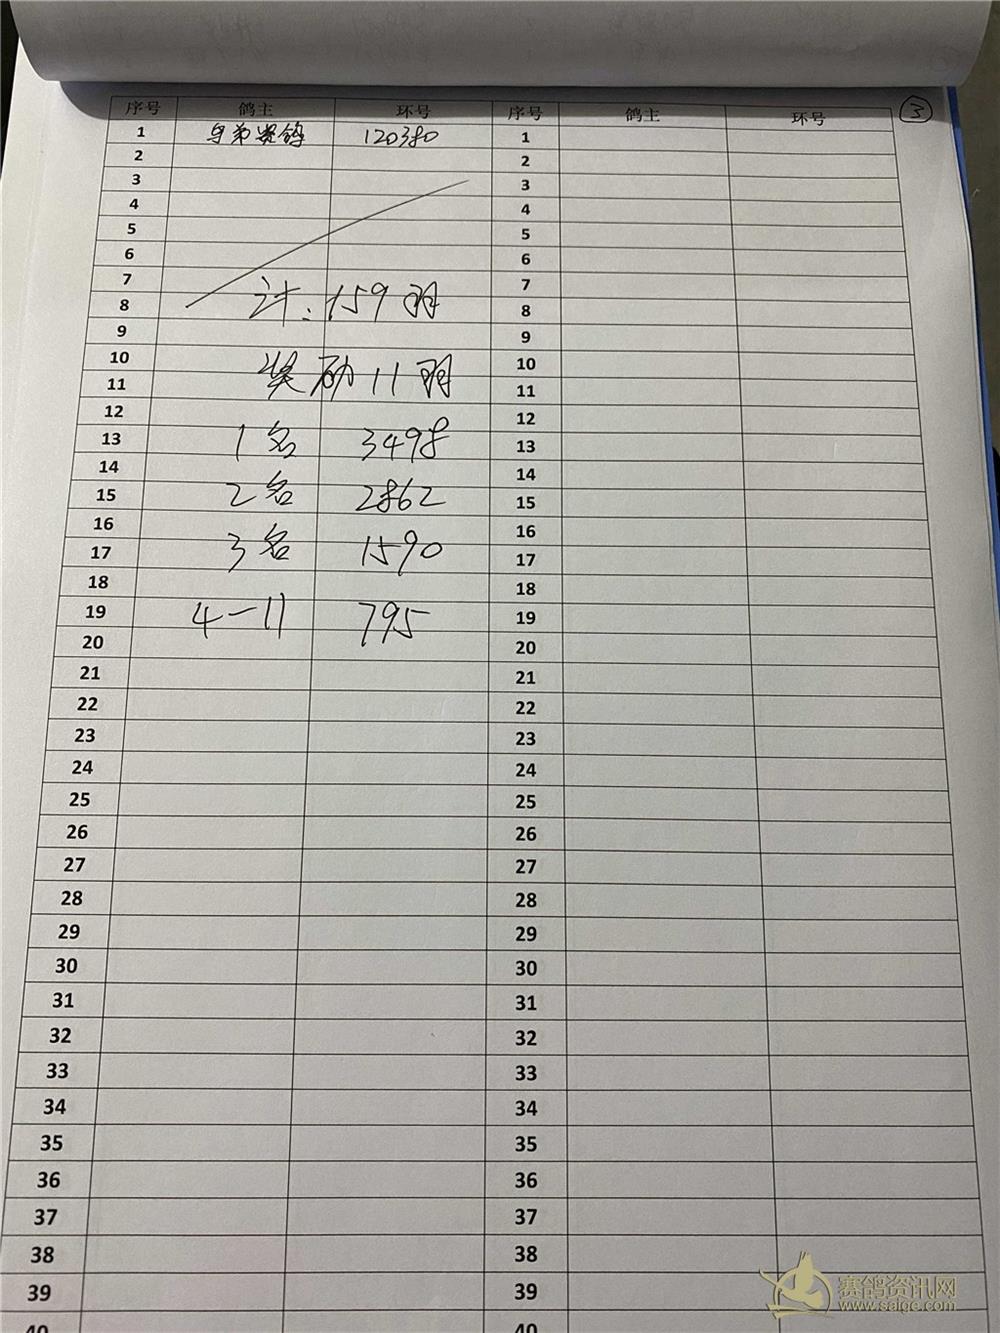 序号 鸽主 环号 序号 鸽主 环号 ③
1 兄弟赛鸽 120380 1
2 2
3 3
4 4
5 5
6 6
7 7
8 计:159羽 8
9 9
10 10
11 奖励11羽 11
12 12
13 1名 3498 13
14 14
15 2名 2862 15
16 16
17 3名 1590 17
18 18
19 4-11 795 19
20 20
21 21
22 22
23 23
24 24
25 25
26 26
27 27
28 28
29 29
30 30
31 31
32 32
33 33
34 34
35 35
36 36
37 37
38 38
39 39
40 40
赛鸽资讯网
www.saige.com